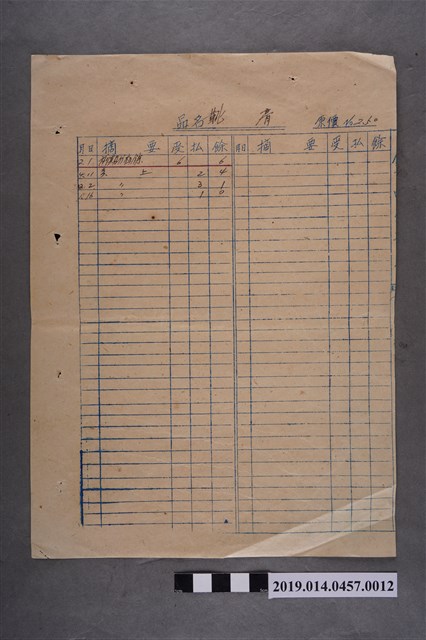 品名 靴 青 原價
月日 摘要 受 払 餘 月日 摘要 受 払 餘
2 1 6 6
11 売上 2 4
2 〃 3 1
16 〃 1 0
2019.014.0457.0012